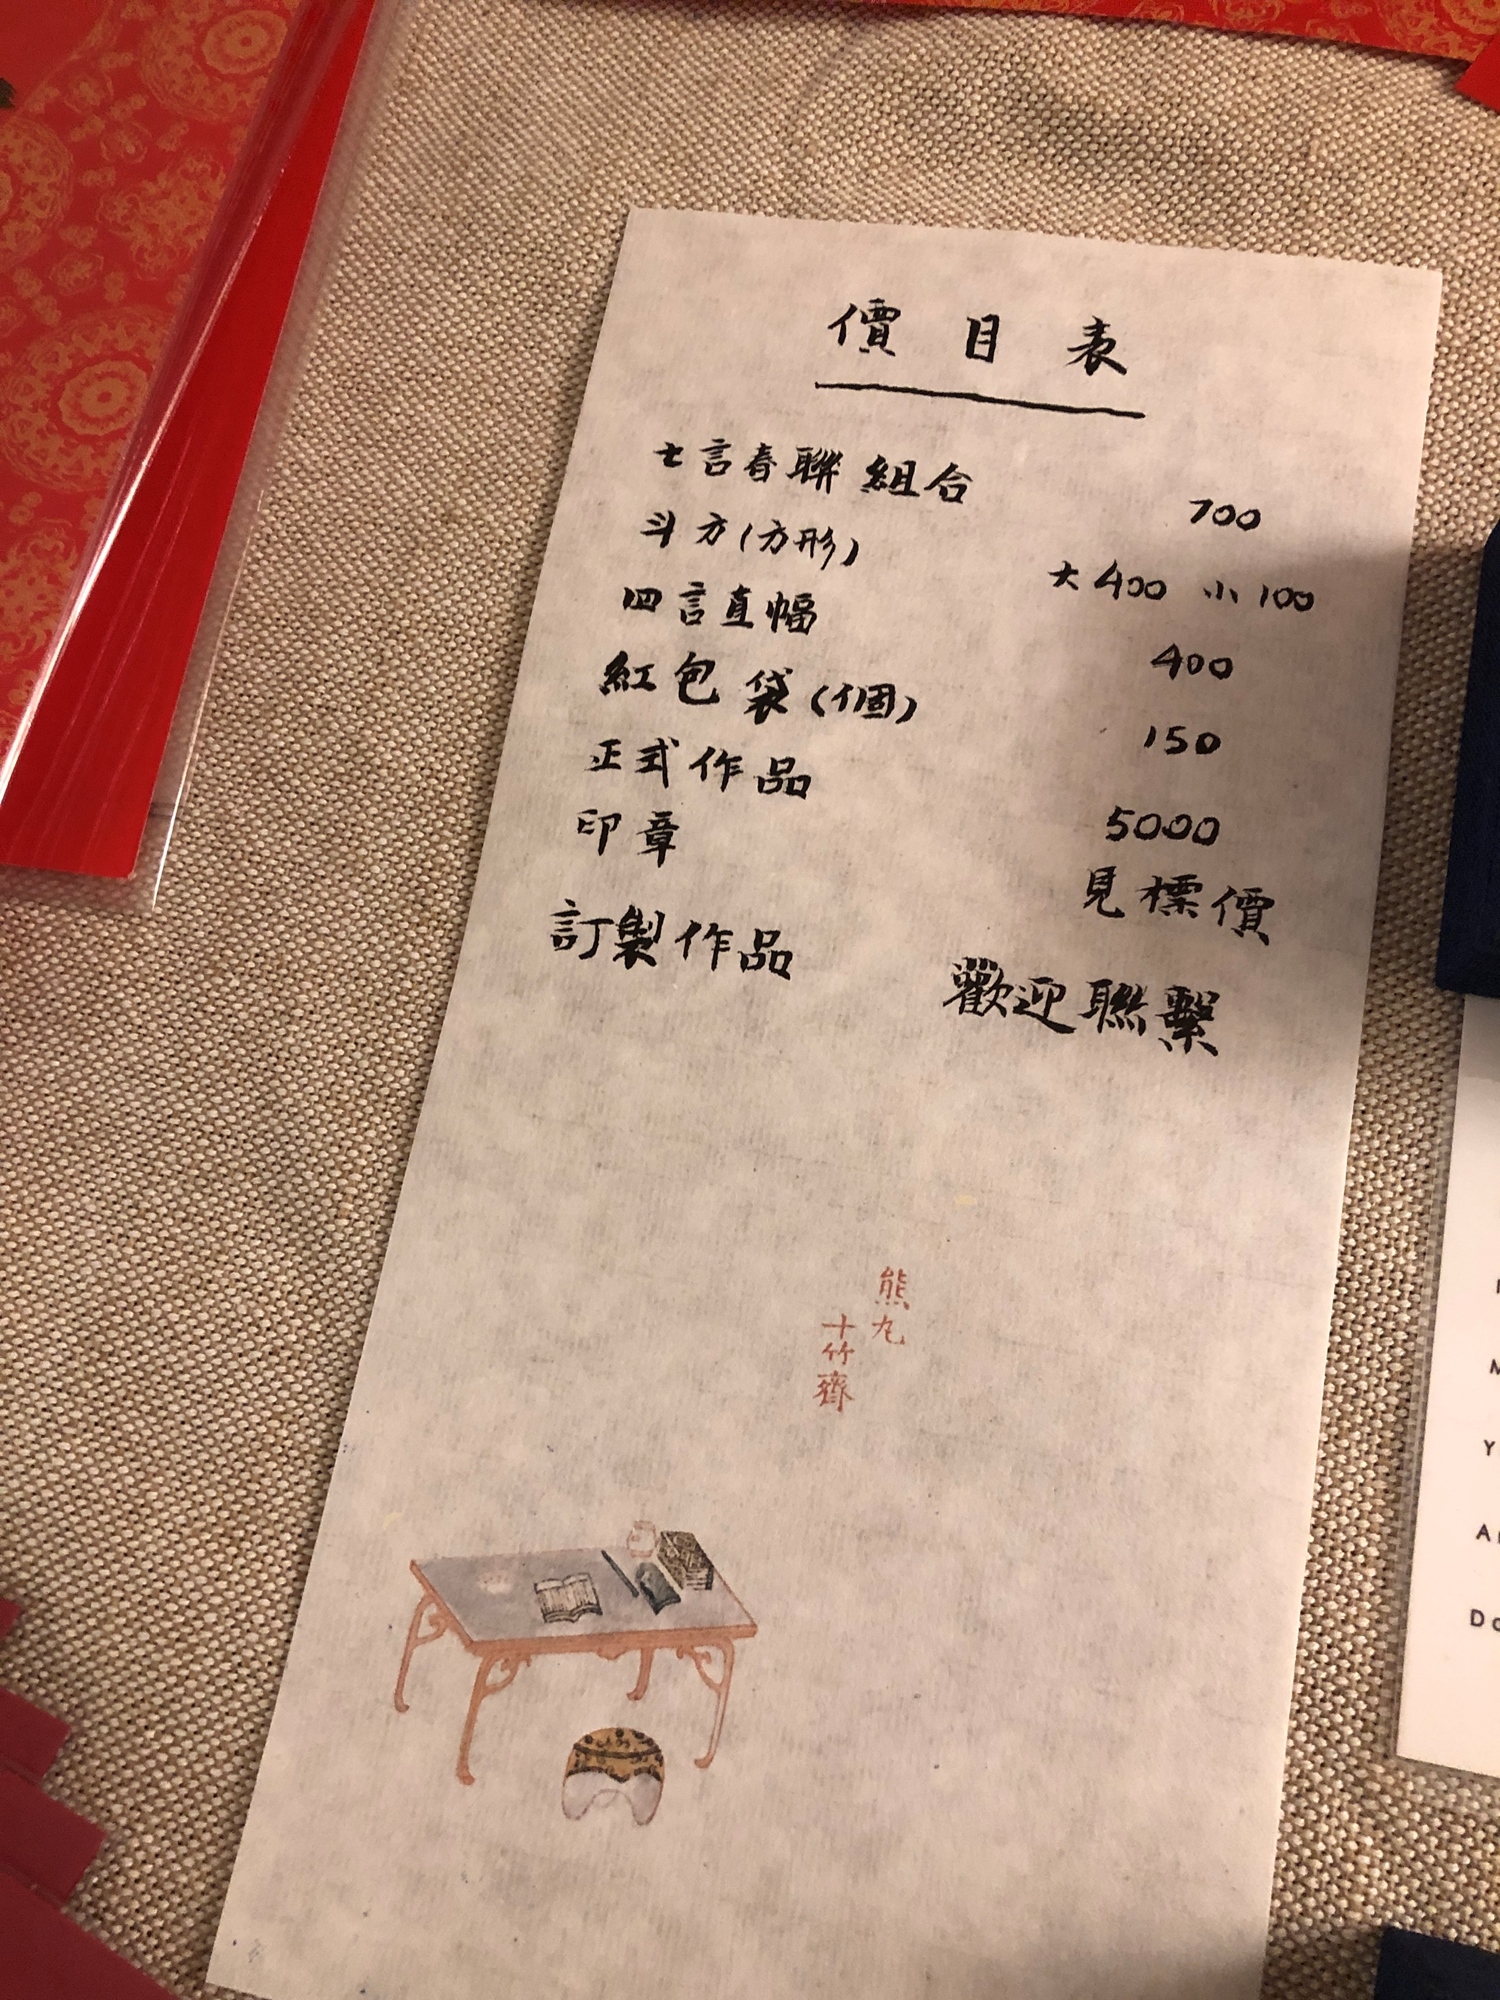 價目表
七言春聯組合 700
斗方(方形) 大400 小100
四言直幅 400
紅包袋(個) 150
正式作品 5000
印章 見標價
訂製作品 歡迎聯繫
熊九
十竹齋